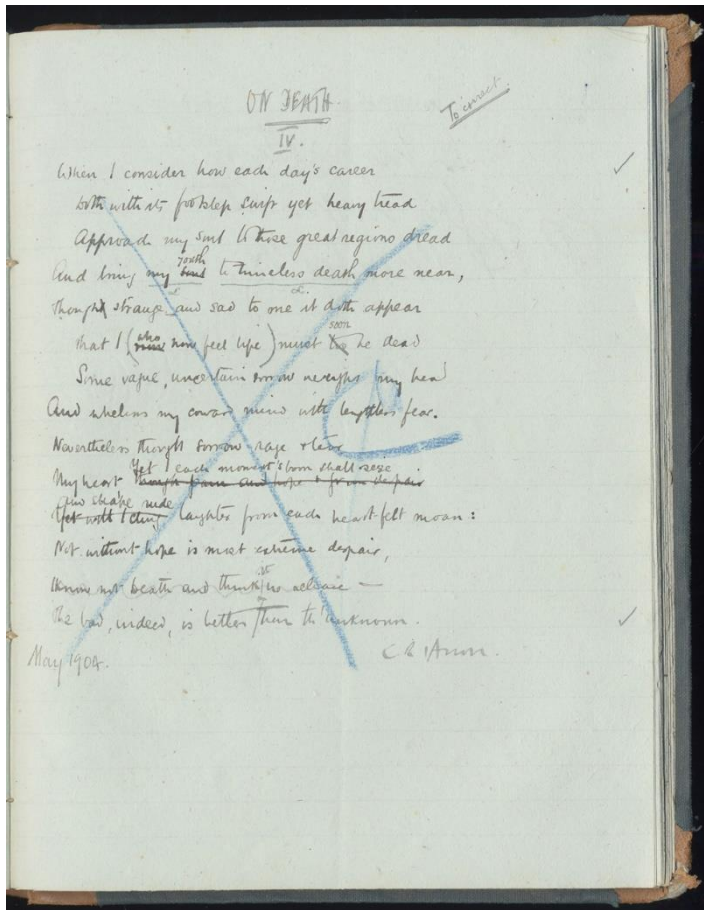 ON DEATH.
To correct.
IV.
When I consider how each day's career
Doth with its footstep swift yet heavy tread
Approach my soul to those great regions dread
youth
And bring my soul to timeless death more near,
Though strange and sad to one it doth appear
who soon
That I (now feel life) must be dead
Some vague, uncertain sorrow weighs my head
And whelms my coward mind with fear.
Nevertheless though sorrow rage & tear
Yet each moment's born shall seize
My heart though pain and hope & from despair
And shake rude
Yet will I cling laughter from each heart-felt moan:
Not without hope is most extreme despair,
it
I know not Death and think no release —
The bad, indeed, is better than th' unknown.
May 1904.
C R Anon.